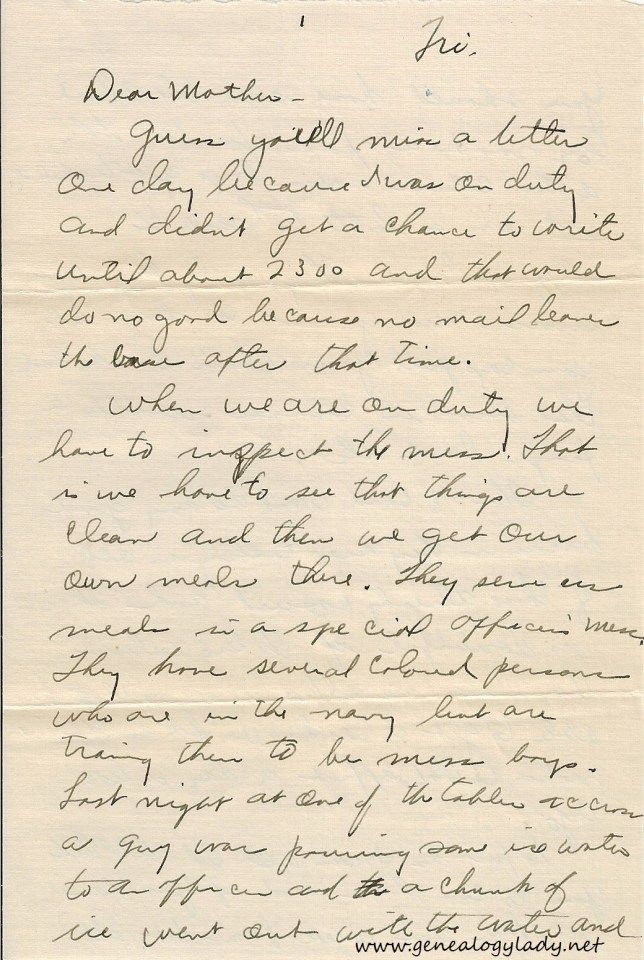 1
Fri.
Dear Mother -
Guess you'll miss a letter
one day because I was on duty
and didn't get a chance to write
until about 2300 and that would
do no good because no mail leaves
the base after that time.
When we are on duty we
have to inspect the mess. That
is we have to see that things are
clean and then we get our
own meals there. They serve us
meals in a special officers mess.
They have several colored persons
who are in the navy but are
traing them to be mess boys.
Last night at one of the tables accross
a guy was pouring some ice water
to an officer and a chunk of
ice went out with the water and
www.genealogylady.net